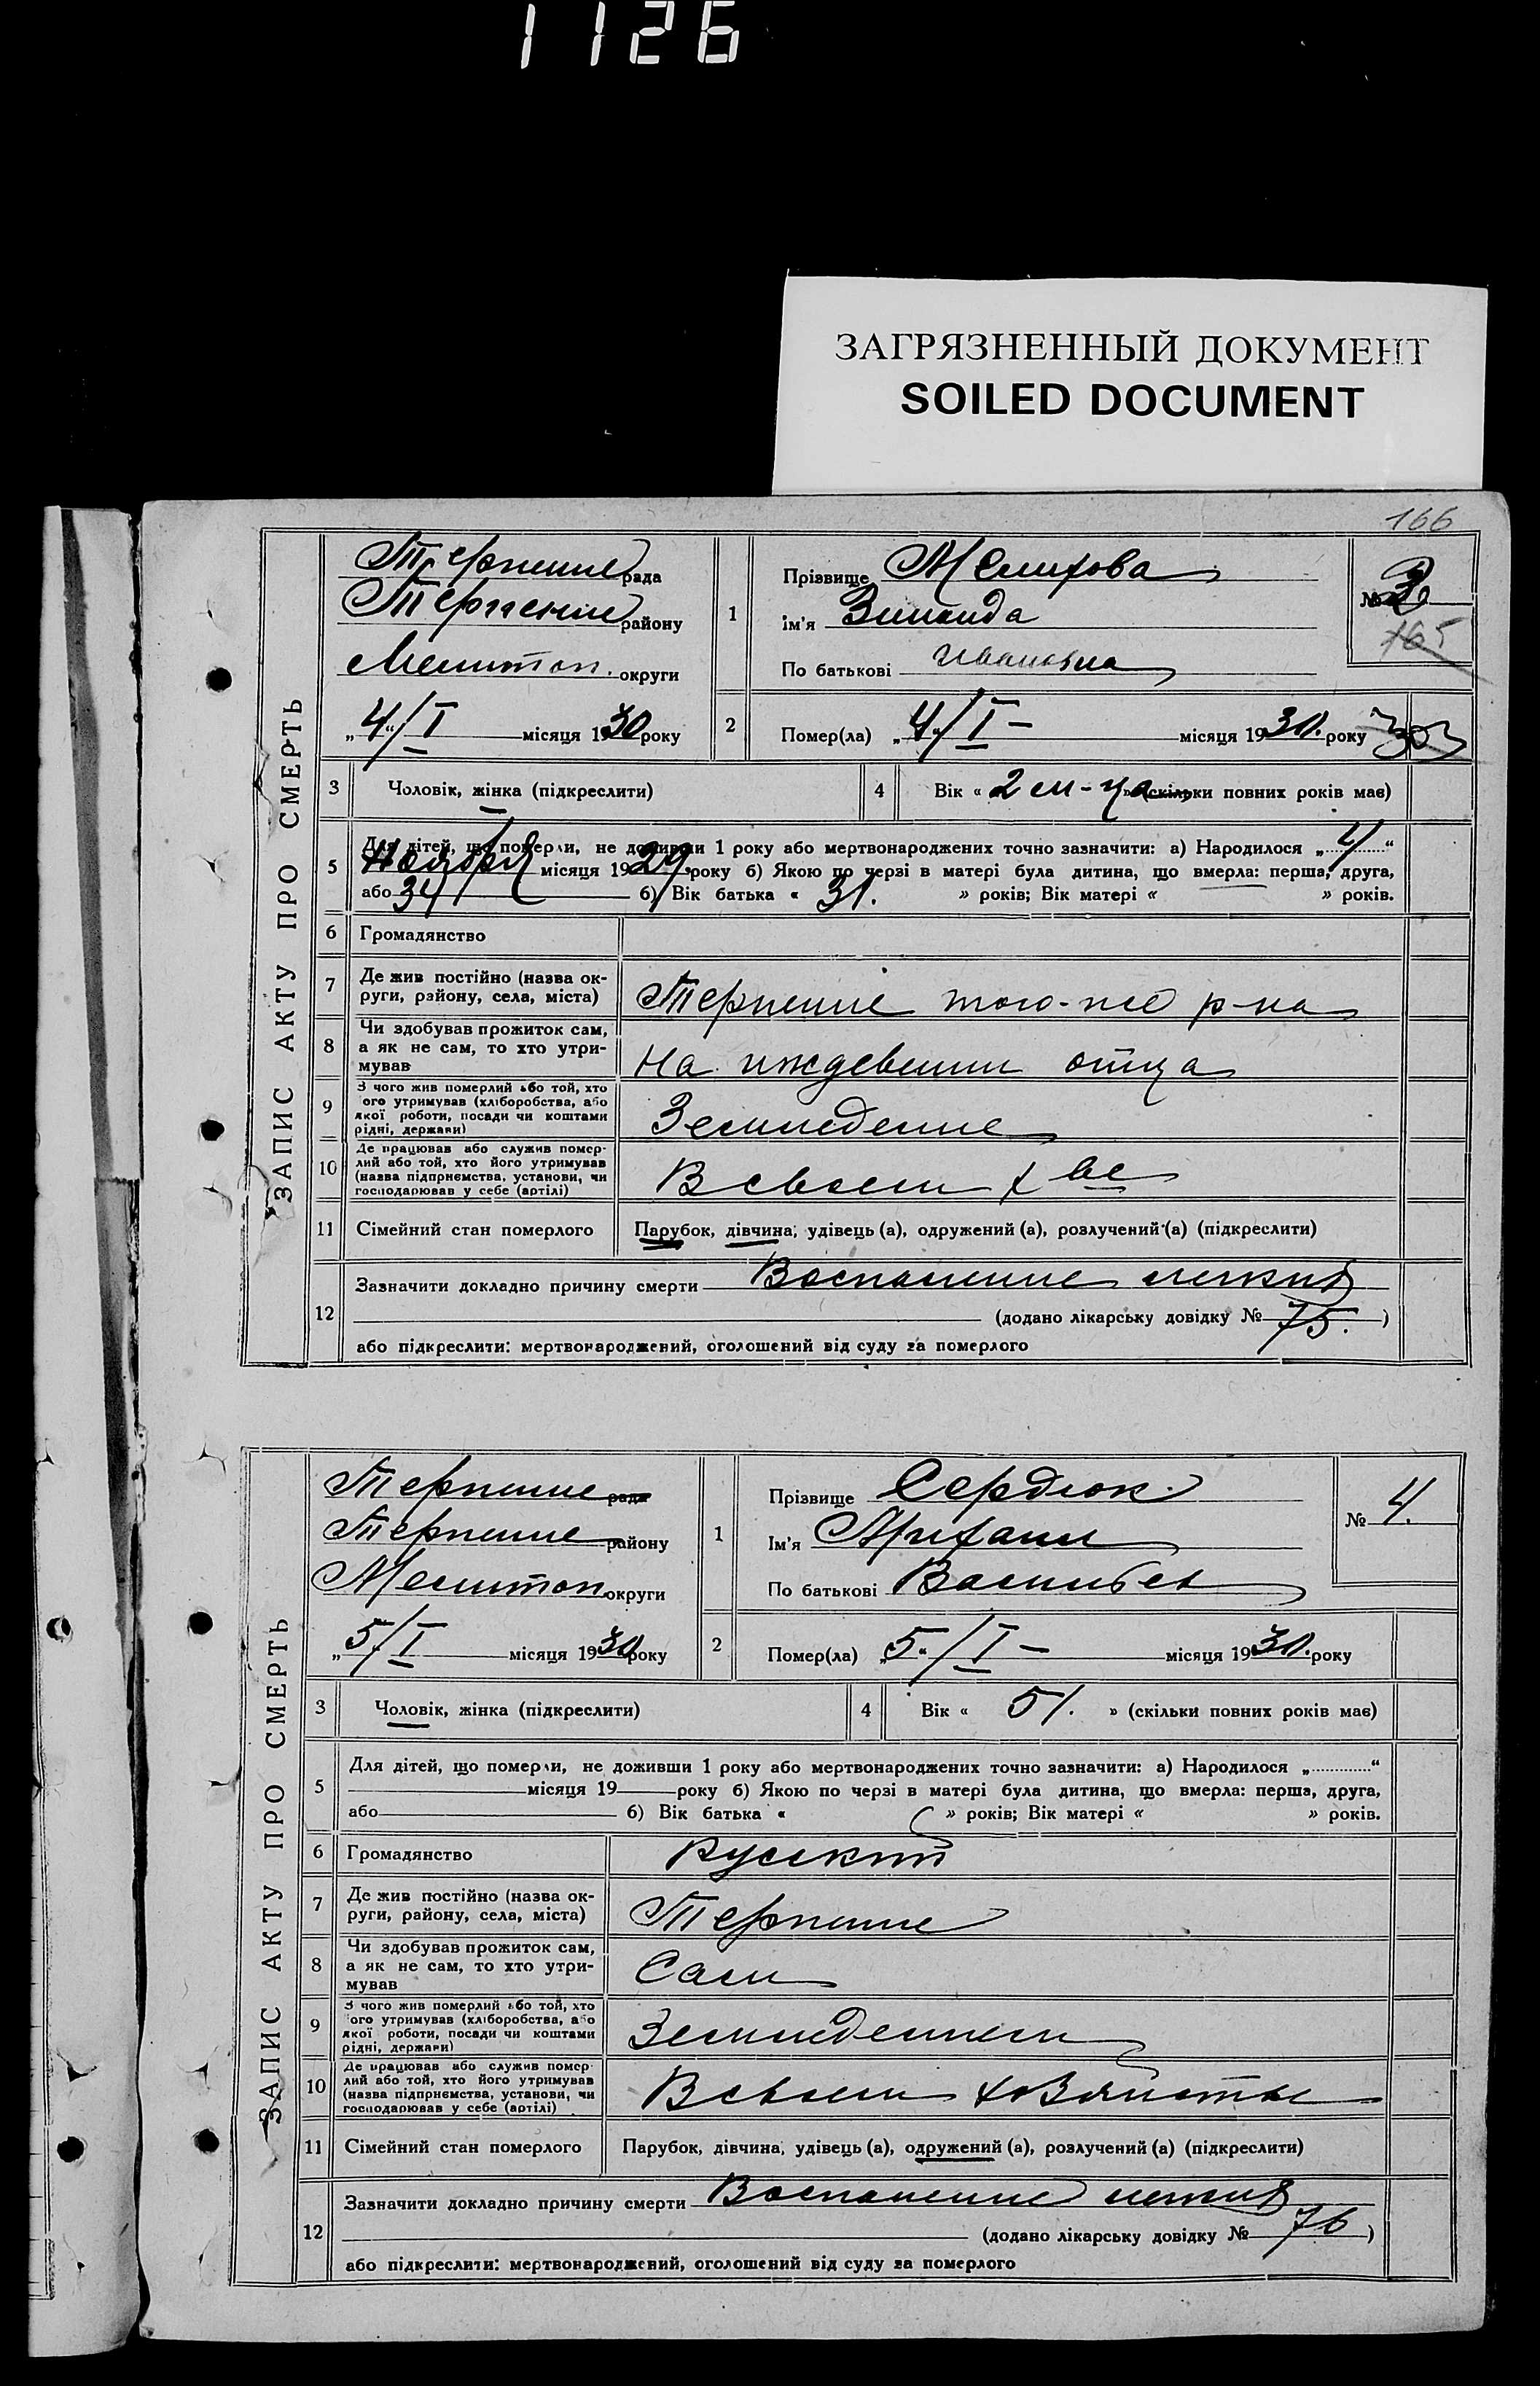 1126
ЗАГРЯЗНЕННЫЙ ДОКУМЕНТ
SOILED DOCUMENT
166
ЗАПИС АКТУ ПРО СМЕРТЬ
Терпение рада
Терпение району
Мелитоп. округи
„4“/I місяця 1930 року
1
Прізвище
Ім'я Зинаида
По батькові Ивановна
№ 3
165
2
Помер(ла) „4“/I – місяця 1930. року
303
3 Чоловік, жінка (підкреслити)
4 Вік « 2 м-ца » (скільки повних років має)
5 Для дітей, що померли, не доживши 1 року або мертвонароджених точно зазначити: а) Народилося „4“
Ноября місяця 1929 року б) Якою по черзі в матері була дитина, що вмерла: перша, друга,
або 34 б) Вік батька « 31. » років; Вік матері « » років.
6 Громадянство
7 Де жив постійно (назва ок-
руги, району, села, міста) Терпение того-же р-на
8 Чи здобував прожиток сам,
а як не сам, то хто утри-
мував На иждевении отца
9 З чого жив померлий або той, хто
ого утримував (хліборобства, або
якої роботи, посади чи коштами
рідні, держави) Земледелие
10 Де працював або служив помер-
лий або той, хто його утримував
(назва підприємства, установи, чи
господарював у себе (артілі) В своем х-ве
11 Сімейний стан померлого Парубок, дівчина, удівець (а), одружений (а), розлучений (а) (підкреслити)
12 Зазначити докладно причину смерти Воспаление легких
(додано лікарську довідку № 75. )
або підкреслити: мертвонароджений, оголошений від суду за померлого
ЗАПИС АКТУ ПРО СМЕРТЬ
Терпение рада
Терпение району
Мелитоп округи
„5“/I місяця 1930 року
1
Прізвище Сердюк
Ім'я
По батькові Васильев
№ 4.
2
Помер(ла) „5“/I – місяця 1930. року
3 Чоловік, жінка (підкреслити)
4 Вік « 51. » (скільки повних років має)
5 Для дітей, що померли, не доживши 1 року або мертвонароджених точно зазначити: а) Народилося „ “
місяця 19 року б) Якою по черзі в матері була дитина, що вмерла: перша, друга,
або б) Вік батька « » років; Вік матері « » років.
6 Громадянство Русский
7 Де жив постійно (назва ок-
руги, району, села, міста) Терпение
8 Чи здобував прожиток сам,
а як не сам, то хто утри-
мував Сам
9 З чого жив померлий або той, хто
ого утримував (хліборобства, або
якої роботи, посади чи коштами
рідні, держави) Земледелием
10 Де працював або служив помер-
лий або той, хто його утримував
(назва підприємства, установи, чи
господарював у себе (артілі) В своем хозяйстве
11 Сімейний стан померлого Парубок, дівчина, удівець (а), одружений (а), розлучений (а) (підкреслити)
12 Зазначити докладно причину смерти Воспаление легких
(додано лікарську довідку № 76 )
або підкреслити: мертвонароджений, оголошений від суду за померлого